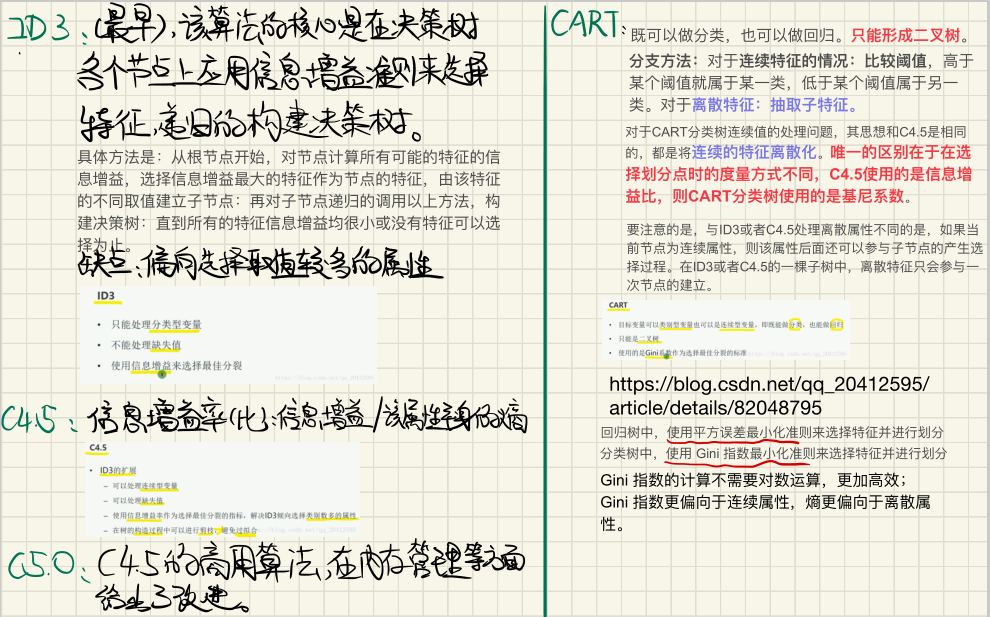 ID3：(最早)，该算法的核心是在决策树
各个节点上应用信息增益准则来选择
特征，递归的构建决策树。
具体方法是：从根节点开始，对节点计算所有可能的特征的信
息增益，选择信息增益最大的特征作为节点的特征，由该特征
的不同取值建立子节点：再对子节点递归的调用以上方法，构
建决策树：直到所有的特征信息增益均很小或没有特征可以选
择为止。
缺点：偏向选择取值较多的属性
ID3
• 只能处理分类型变量
• 不能处理缺失值
• 使用信息增益来选择最佳分裂
C4.5：信息增益率(比)：信息增益/该属性自身的熵
C4.5
• ID3的扩展
– 可以处理连续型变量
– 可以处理缺失值
– 使用信息增益率作为选择最佳分裂的指标，解决ID3倾向选择类别数多的属性
– 在树的构造过程中可以进行剪枝，避免过拟合
C5.0：C4.5的商用算法，在内存管理等方面
给出了改进。
CART：
既可以做分类，也可以做回归。只能形成二叉树。
分支方法：对于连续特征的情况：比较阈值，高于
某个阈值就属于某一类，低于某个阈值属于另一
类。对于离散特征：抽取子特征。
对于CART分类树连续值的处理问题，其思想和C4.5是相同
的，都是将连续的特征离散化。唯一的区别在于在选
择划分点时的度量方式不同，C4.5使用的是信息增
益比，则CART分类树使用的是基尼系数。
要注意的是，与ID3或者C4.5处理离散属性不同的是，如果当
前节点为连续属性，则该属性后面还可以参与子节点的产生选
择过程。在ID3或者C4.5的一棵子树中，离散特征只会参与一
次节点的建立。
CART
• 目标变量可以类别型变量也可以是连续型变量，即既能做分类，也能做回归
• 只能是二叉树
• 使用的是Gini系数作为选择最佳分裂的标准
https://blog.csdn.net/qq_20412595/
article/details/82048795
回归树中，使用平方误差最小化准则来选择特征并进行划分
分类树中，使用 Gini 指数最小化准则来选择特征并进行划分
Gini 指数的计算不需要对数运算，更加高效；
Gini 指数更偏向于连续属性，熵更偏向于离散属
性。